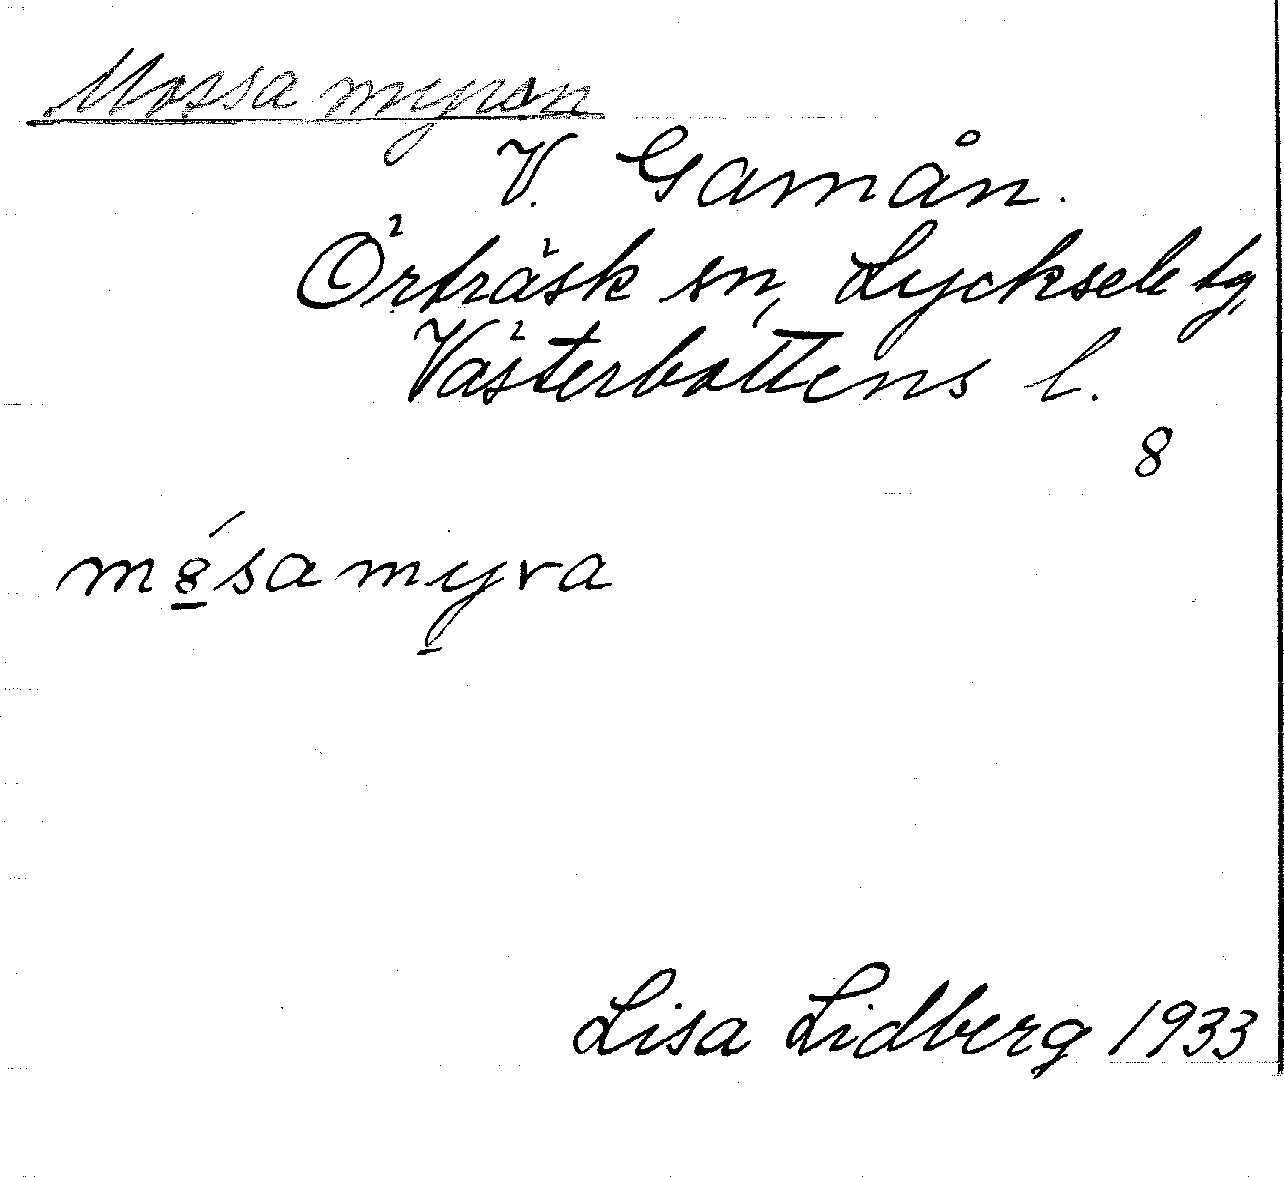 Mossamyran
V. Gamån.
Örträsk sn, Lycksele tg,
Västerbottens l.
8
mȣ̱́samy̱ra
Lisa Lidberg 1933